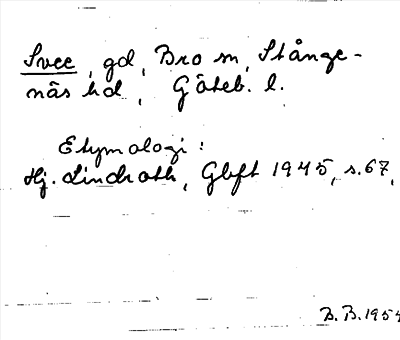 Svee, gd, Bro sn, Stånge-
näs hd, Göteb. l.
Etymologi:
Hj. Lindroth, Gbft 1945, s. 67,
B. B. 1954